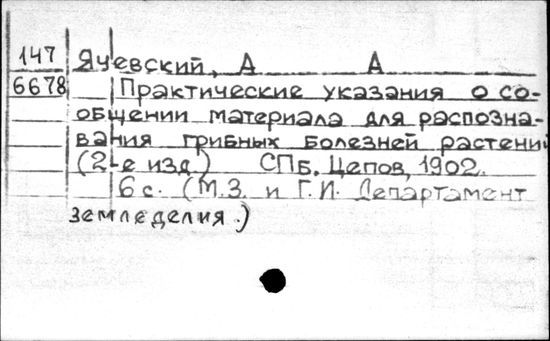 147 Ячевский, А А
6678 Практические указания о со-
общении материала для распозна-
вания грибных болезней растений
(2-е изд.) СПб. Цепов, 1902.
6 с. (М.З. и Г.И. Департамент
земледелия.)